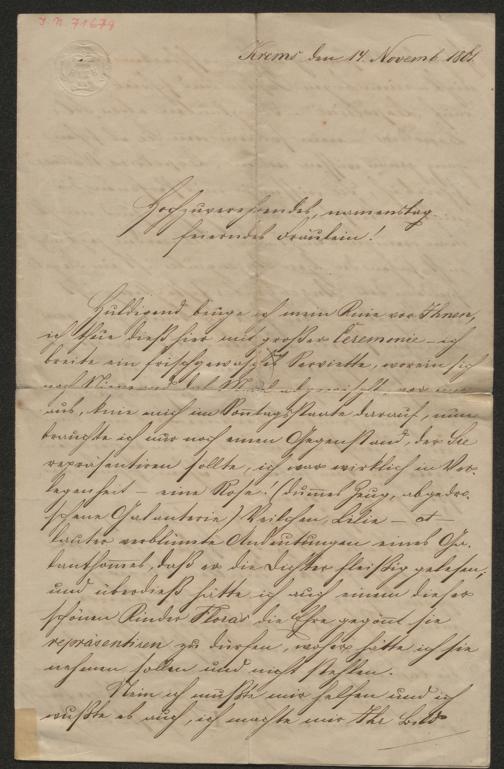 I.N. 71679
Krems den 14. Novemb. 1861.
Hochzuverehrendes, namenstag
feierndes Fräulein!
Huldigend beuge ich mein Knie vor Ihnen,
ich thue dieß hier mit großer Ceremonie – ich
breite ein frischgewasch Serviette, worein sich
noch Niemand das Maul abgewischt vor mir
aus, knie mich im Sonntagsstaate darauf, nun
brauchte ich nur noch einen Gegenstand, der Sie
repräsentiren sollte, ich war wirklich in Ver-
legenheit – eine Rose! (dummes Zeug, abgedro-
schene Galanterie) Veilchen, Lilie –
lauter verblümte Andeutungen eines Ga-
lanthommes, daß er die Dichter fleißig gelesen;
und überdieß hätte ich auch einem dieser
schönen Kinder Floras die Ehre gegönt sie
repräsentiren zu dürfen, woher hätte ich sie
nehmen sollen und nicht stehlen.
Nein ich mußte mir helfen und ich
wußte es auch, ich machte mir Ihr Bild